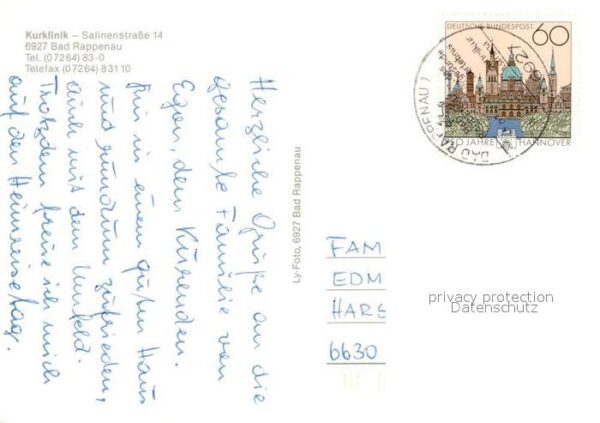 Kurklinik – Salinenstraße 14
6927 Bad Rappenau
Tel. (07264) 83-0
Telefax (07264) 83110
Herzliche Grüße an die
gesamte Familie von
Eurem, dem Kurenden.
Bin in einem guten Haus
und rundum zufrieden,
auch mit dem Umfeld.
Trotzdem freue ich mich
auf den Heimreisetag.
Ly-Foto, 6927 Bad Rappenau
DEUTSCHE BUNDESPOST
60
JAHRE HANNOVER
6927
BAD RAPPENAU 1
FAM
EDM
HARE
6630
privacy protection
Datenschutz